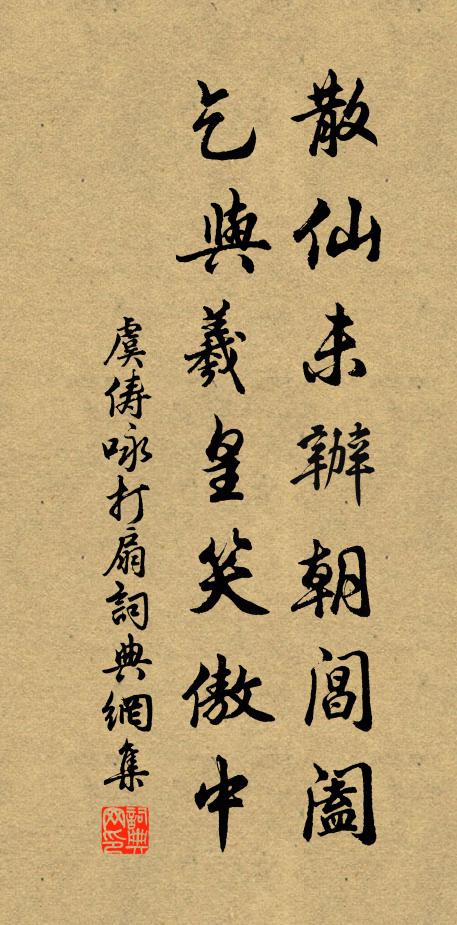 散仙未辦朝閶闔
乞與羲皇笑傲中
虞儔咏打扇詞典網集
詞典網印